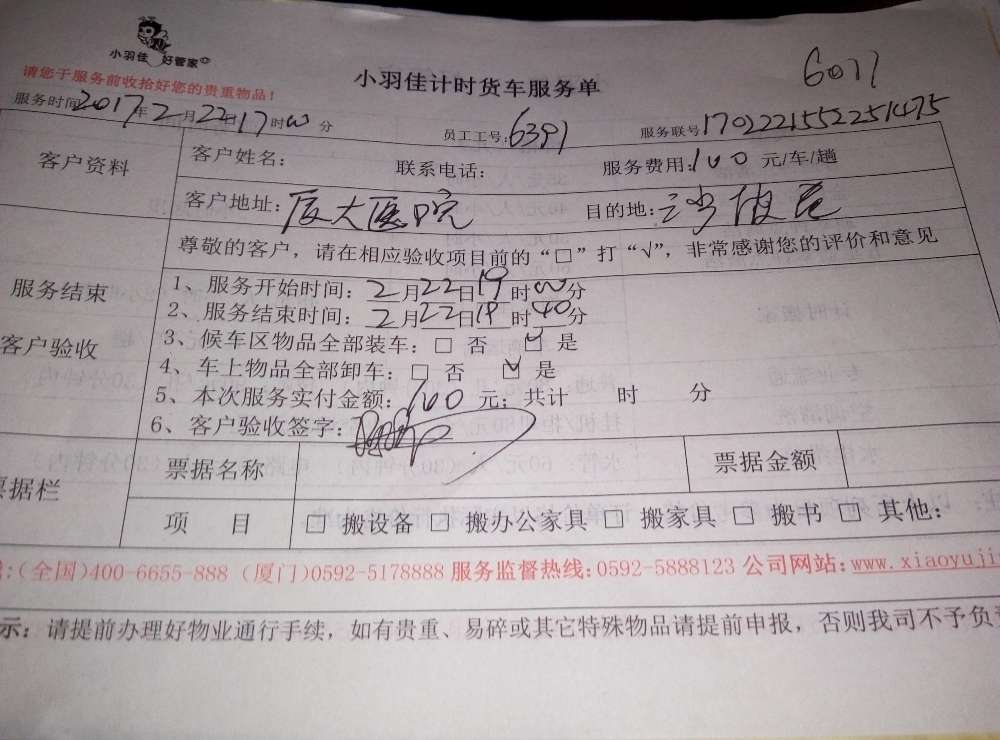 小羽佳 好管家
请您于服务前收拾好您的贵重物品！
小羽佳计时货车服务单
6011
服务时间：2017年2月22日17时00分
员工工号：6391
服务联号1702221552251475
客户资料
客户姓名： 联系电话： 服务费用：100元/车/趟
客户地址：厦大医院 目的地：
尊敬的客户，请在相应验收项目前的“□”打“√”，非常感谢您的评价和意见
服务结束
客户验收
1、服务开始时间：2月22日19时00分
2、服务结束时间：2月22日19时40分
3、候车区物品全部装车：□ 否 ☑ 是
4、车上物品全部卸车：□ 否 ☑ 是
5、本次服务实付金额：100元；共计 时 分
6、客户验收签字：
票据栏
票据名称 票据金额
项 目 □ 搬设备 □ 搬办公家具 □ 搬家具 □ 搬书 □ 其他：
:(全国)400-6655-888 (厦门)0592-5178888 服务监督热线:0592-5888123 公司网站:www.xiaoyuji
示：请提前办理好物业通行手续，如有贵重、易碎或其它特殊物品请提前申报，否则我司不予负